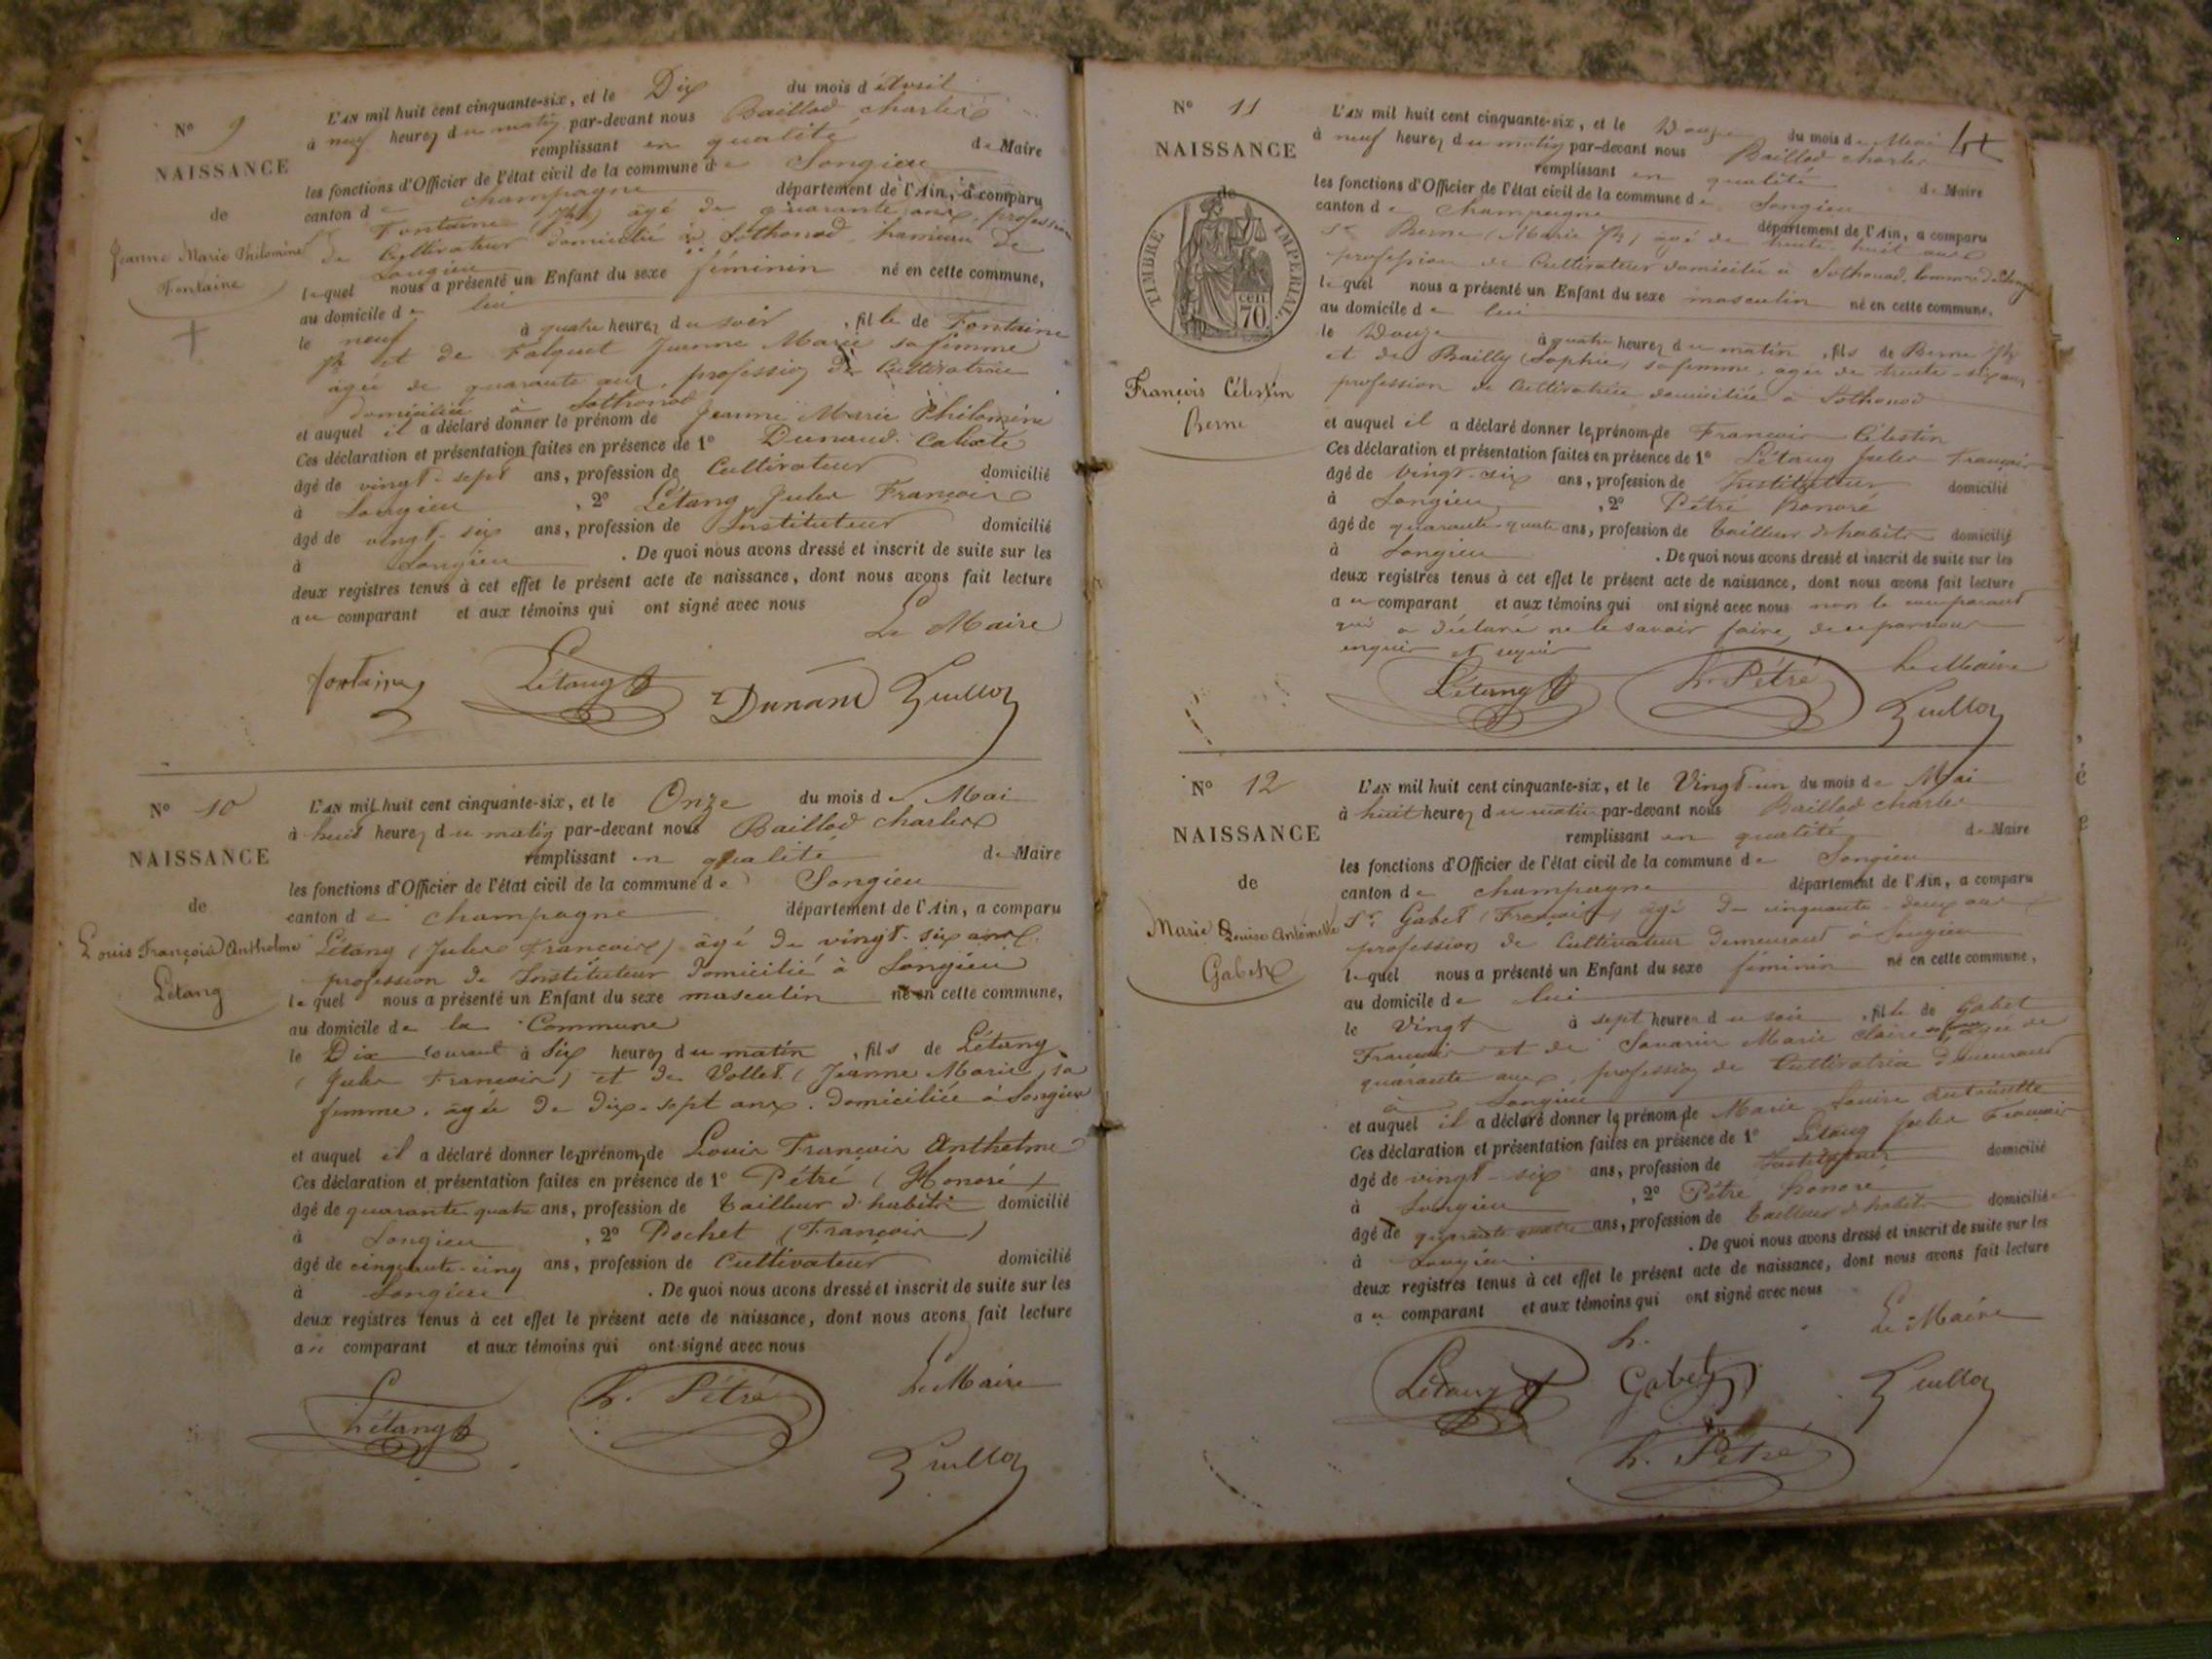 N° 9
NAISSANCE
de
Jeanne Marie Philomène
Fontaine
L'AN mil huit cent cinquante-six, et le Dix du mois d'Avril
à neuf heures du matin par-devant nous Baillod Charles
remplissant en qualité de Maire
les fonctions d'Officier de l'état civil de la commune de Songieu
canton de Champagne département de l'Ain, a comparu
Fontaine âgé de quarante ans, profession
de Cultivateur domicilié à Sothonod hameau de
Songieu
lequel nous a présenté un Enfant du sexe féminin né en cette commune,
au domicile de lui
le neuf à quatre heures du soir, fille de Fontaine
et de Falquet Jeanne Marie sa femme
agée de quarante ans, profession de Cultivatrice
domiciliée à Sothonod
et auquel il a déclaré donner le prénom de Jeanne Marie Philomène
Ces déclaration et présentation faites en présence de 1° Dunand Calixte
âgé de vingt-sept ans, profession de Cultivateur domicilié
à Songieu, 2° Létang Jules François
âgé de vingt-six ans, profession de Instituteur domicilié
à Songieu. De quoi nous avons dressé et inscrit de suite sur les
deux registres tenus à cet effet le présent acte de naissance, dont nous avons fait lecture
au comparant et aux témoins qui ont signé avec nous
Le Maire
fontaine Létang Dunand
N° 10
NAISSANCE
de
Louis François Anthelme
Létang
L'AN mil huit cent cinquante-six, et le Onze du mois de Mai
à huit heures du matin par-devant nous Baillod Charles
remplissant en qualité de Maire
les fonctions d'Officier de l'état civil de la commune de Songieu
canton de Champagne département de l'Ain, a comparu
Létang (Jules François) âgé de vingt-six ans
profession de Instituteur domicilié à Songieu
lequel nous a présenté un Enfant du sexe masculin né en cette commune,
au domicile de la Commune
le Dix courant à six heures du matin, fils de Létang
(Jules François) et de Vollet (Jeanne Marie) sa
femme, âgée de dix-sept ans, domiciliée à Songieu
et auquel il a déclaré donner les prénoms de Louis François Anthelme
Ces déclaration et présentation faites en présence de 1° Pétré (Honoré)
âgé de quarante quatre ans, profession de tailleur d'habits domicilié
à Songieu, 2° Pochet (François)
âgé de cinquante-cinq ans, profession de Cultivateur domicilié
à Songieu. De quoi nous avons dressé et inscrit de suite sur les
deux registres tenus à cet effet le présent acte de naissance, dont nous avons fait lecture
au comparant et aux témoins qui ont signé avec nous
Le Maire
Létang h. Pétré
N° 11
NAISSANCE
de
TIMBRE IMPERIAL.
70 cen
François Célestin
Berne
L'AN mil huit cent cinquante-six, et le Douze du mois de Mai
à neuf heures du matin par-devant nous Baillod Charles
remplissant en qualité de Maire
les fonctions d'Officier de l'état civil de la commune de Songieu
canton de Champagne département de l'Ain, a comparu
Sr Berne (Marie âgé de trente-huit ans
profession de Cultivateur domicilié à Sothonod, Commune de Songieu
lequel nous a présenté un Enfant du sexe masculin né en cette commune,
au domicile de lui
le Douze à quatre heures du matin, fils de Berne
et de Bailly (Sophie) sa femme, agée de trente-six ans
profession de Cultivatrice domiciliée à Sothonod
et auquel il a déclaré donner les prénoms de François Célestin
Ces déclaration et présentation faites en présence de 1° Létang Jules François
âgé de vingt-six ans, profession de Instituteur domicilié
à Songieu, 2° Pétré honoré
âgé de quarante-quatre ans, profession de tailleur d'habits domicilié
à Songieu. De quoi nous avons dressé et inscrit de suite sur les
deux registres tenus à cet effet le présent acte de naissance, dont nous avons fait lecture
au comparant et aux témoins qui ont signé avec nous non le comparant
qui a déclaré ne le savoir faire, de ce par nous
enquis et requis
Le Maire
Létang h. Pétré
N° 12
NAISSANCE
de
Marie Louise Antoinette
Gabet
L'AN mil huit cent cinquante-six, et le Vingt-un du mois de Mai
à huit heures du matin par-devant nous Baillod Charles
remplissant en qualité de Maire
les fonctions d'Officier de l'état civil de la commune de Songieu
canton de Champagne département de l'Ain, a comparu
Sr Gabet (François) âgé de cinquante-deux ans
profession de Cultivateur demeurant à Songieu
lequel nous a présenté un Enfant du sexe féminin né en cette commune,
au domicile de lui
le Vingt à sept heures du soir, fille de Gabet
François et de Savarin Marie Claire sa femme agée de
quarante ans, profession de Cultivatrice demeurant
à Songieu
et auquel il a déclaré donner les prénoms de Marie Louise Antoinette
Ces déclaration et présentation faites en présence de 1° Létang Jules François
âgé de vingt-six ans, profession de Instituteur domicilié
à Songieu, 2° Pétré honoré
âgé de quarante quatre ans, profession de tailleur d'habits domicilié
à Songieu. De quoi nous avons dressé et inscrit de suite sur les
deux registres tenus à cet effet le présent acte de naissance, dont nous avons fait lecture
au comparant et aux témoins qui ont signé avec nous
Le Maire
Létang Gabet
h. Pétré